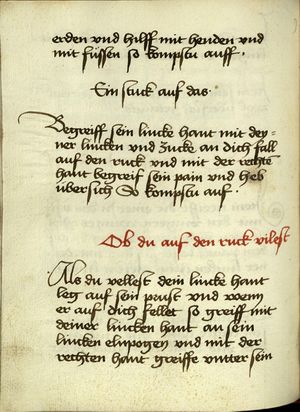 erden vnd hilff mit henden vnd
mit füssen so kompstu auff ·
Ein stuck auf das ·
Begreiff sein lincke hant mit dey=
ner lincken vnd zucke an dich fall
auf den ruck vnd mit der rechte
hant begreif sein pain vnd heb
übersich So kompstu auf ·
Ob du auf den ruck vilest
Als du vellest dein lincke hant
leg auf sein prust vnd wenn
er auf dich fellet so greiff mit
deiner lincken hant an sein
lincken elnpogen vnd mit der
rechten hant greiffe vntter sein